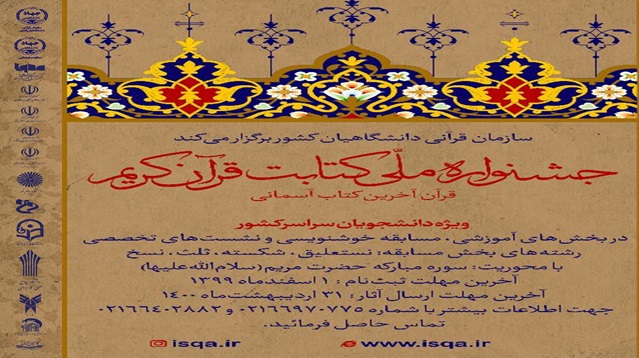 سازمان قرآنی دانشگاهیان کشور برگزار می‌کند
جشنواره ملّی کتابت قرآن کریم
قرآن آخرین کتاب آسمانی
ویژه دانشجویان سراسر کشور
در بخش‌های آموزشی . مسابقه خوشنویسی و نشست‌های تخصصی
رشته‌های بخش مسابقه: نستعلیق . شکسته . ثلث . نسخ
با محوریت: سوره مبارکه حضرت مریم (سلام‌الله‌علیها)
آخرین مهلت ثبت نام : ۱ اسفندماه ۱۳۹۹
آخرین مهلت ارسال آثار : ۳۱ اردیبهشت‌ماه ۱۴۰۰
جهت اطلاعات بیشتر با شماره ۰۲۱۶۶۹۷۰۷۷۵ و ۰۲۱۶۶۴۰۲۸۸۲
تماس حاصل فرمائید.
isqa.ir www.isqa.ir